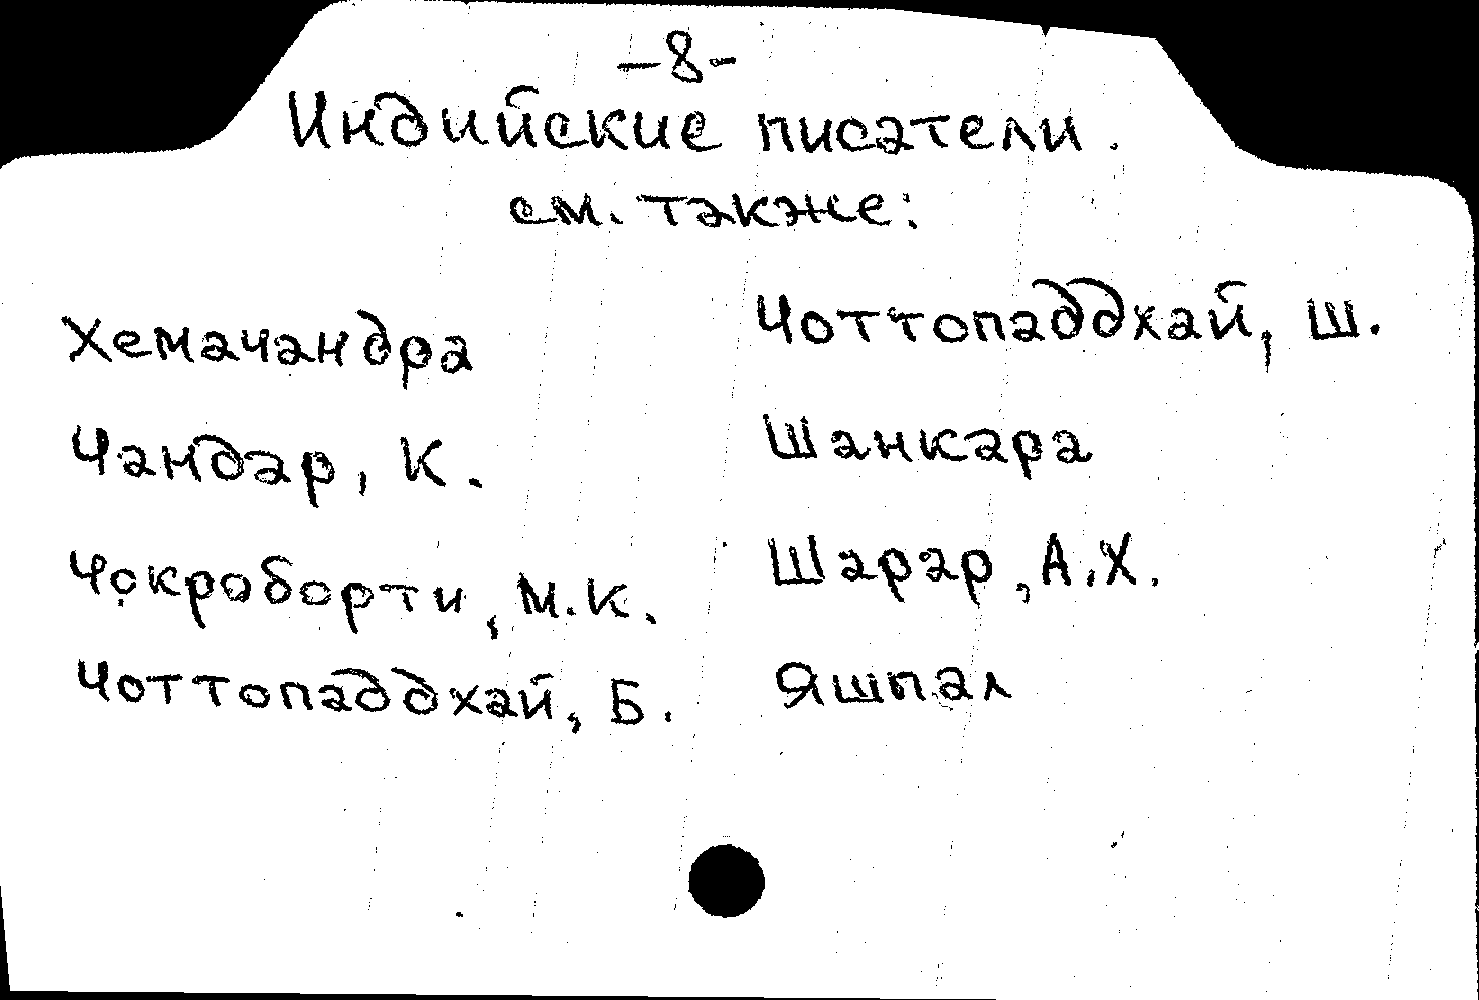 -8-
Индийские писатели.
см. также:
Хемачандра
Чандар, К.
Чокроборти, М.К.
Чоттопаддхай, Б.
Чоттопаддхай, Ш.
Шанкара
Шарар, А.Х.
Яшпал